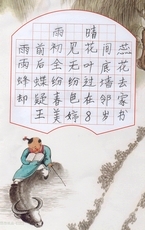 雨晴
雨前初见花间蕊
雨后全无叶底花
蜂蝶纷纷过墙去
却疑春色在邻家
王美婷8岁书